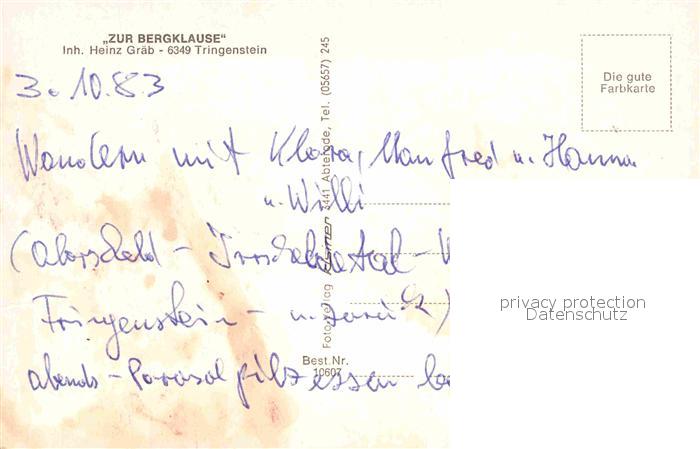 „ZUR BERGKLAUSE“
Inh. Heinz Gräb - 6349 Tringenstein
Die gute
Farbkarte
3.10.83
Wandern mit Klara, Manfred u. Hanna
u. Willi
Tringenstein - u.
abends - Parasolpilzessen
Fotoverlag 3441 Abterode, Tel. (05657) 245
Best.Nr.
10607
privacy protection
Datenschutz